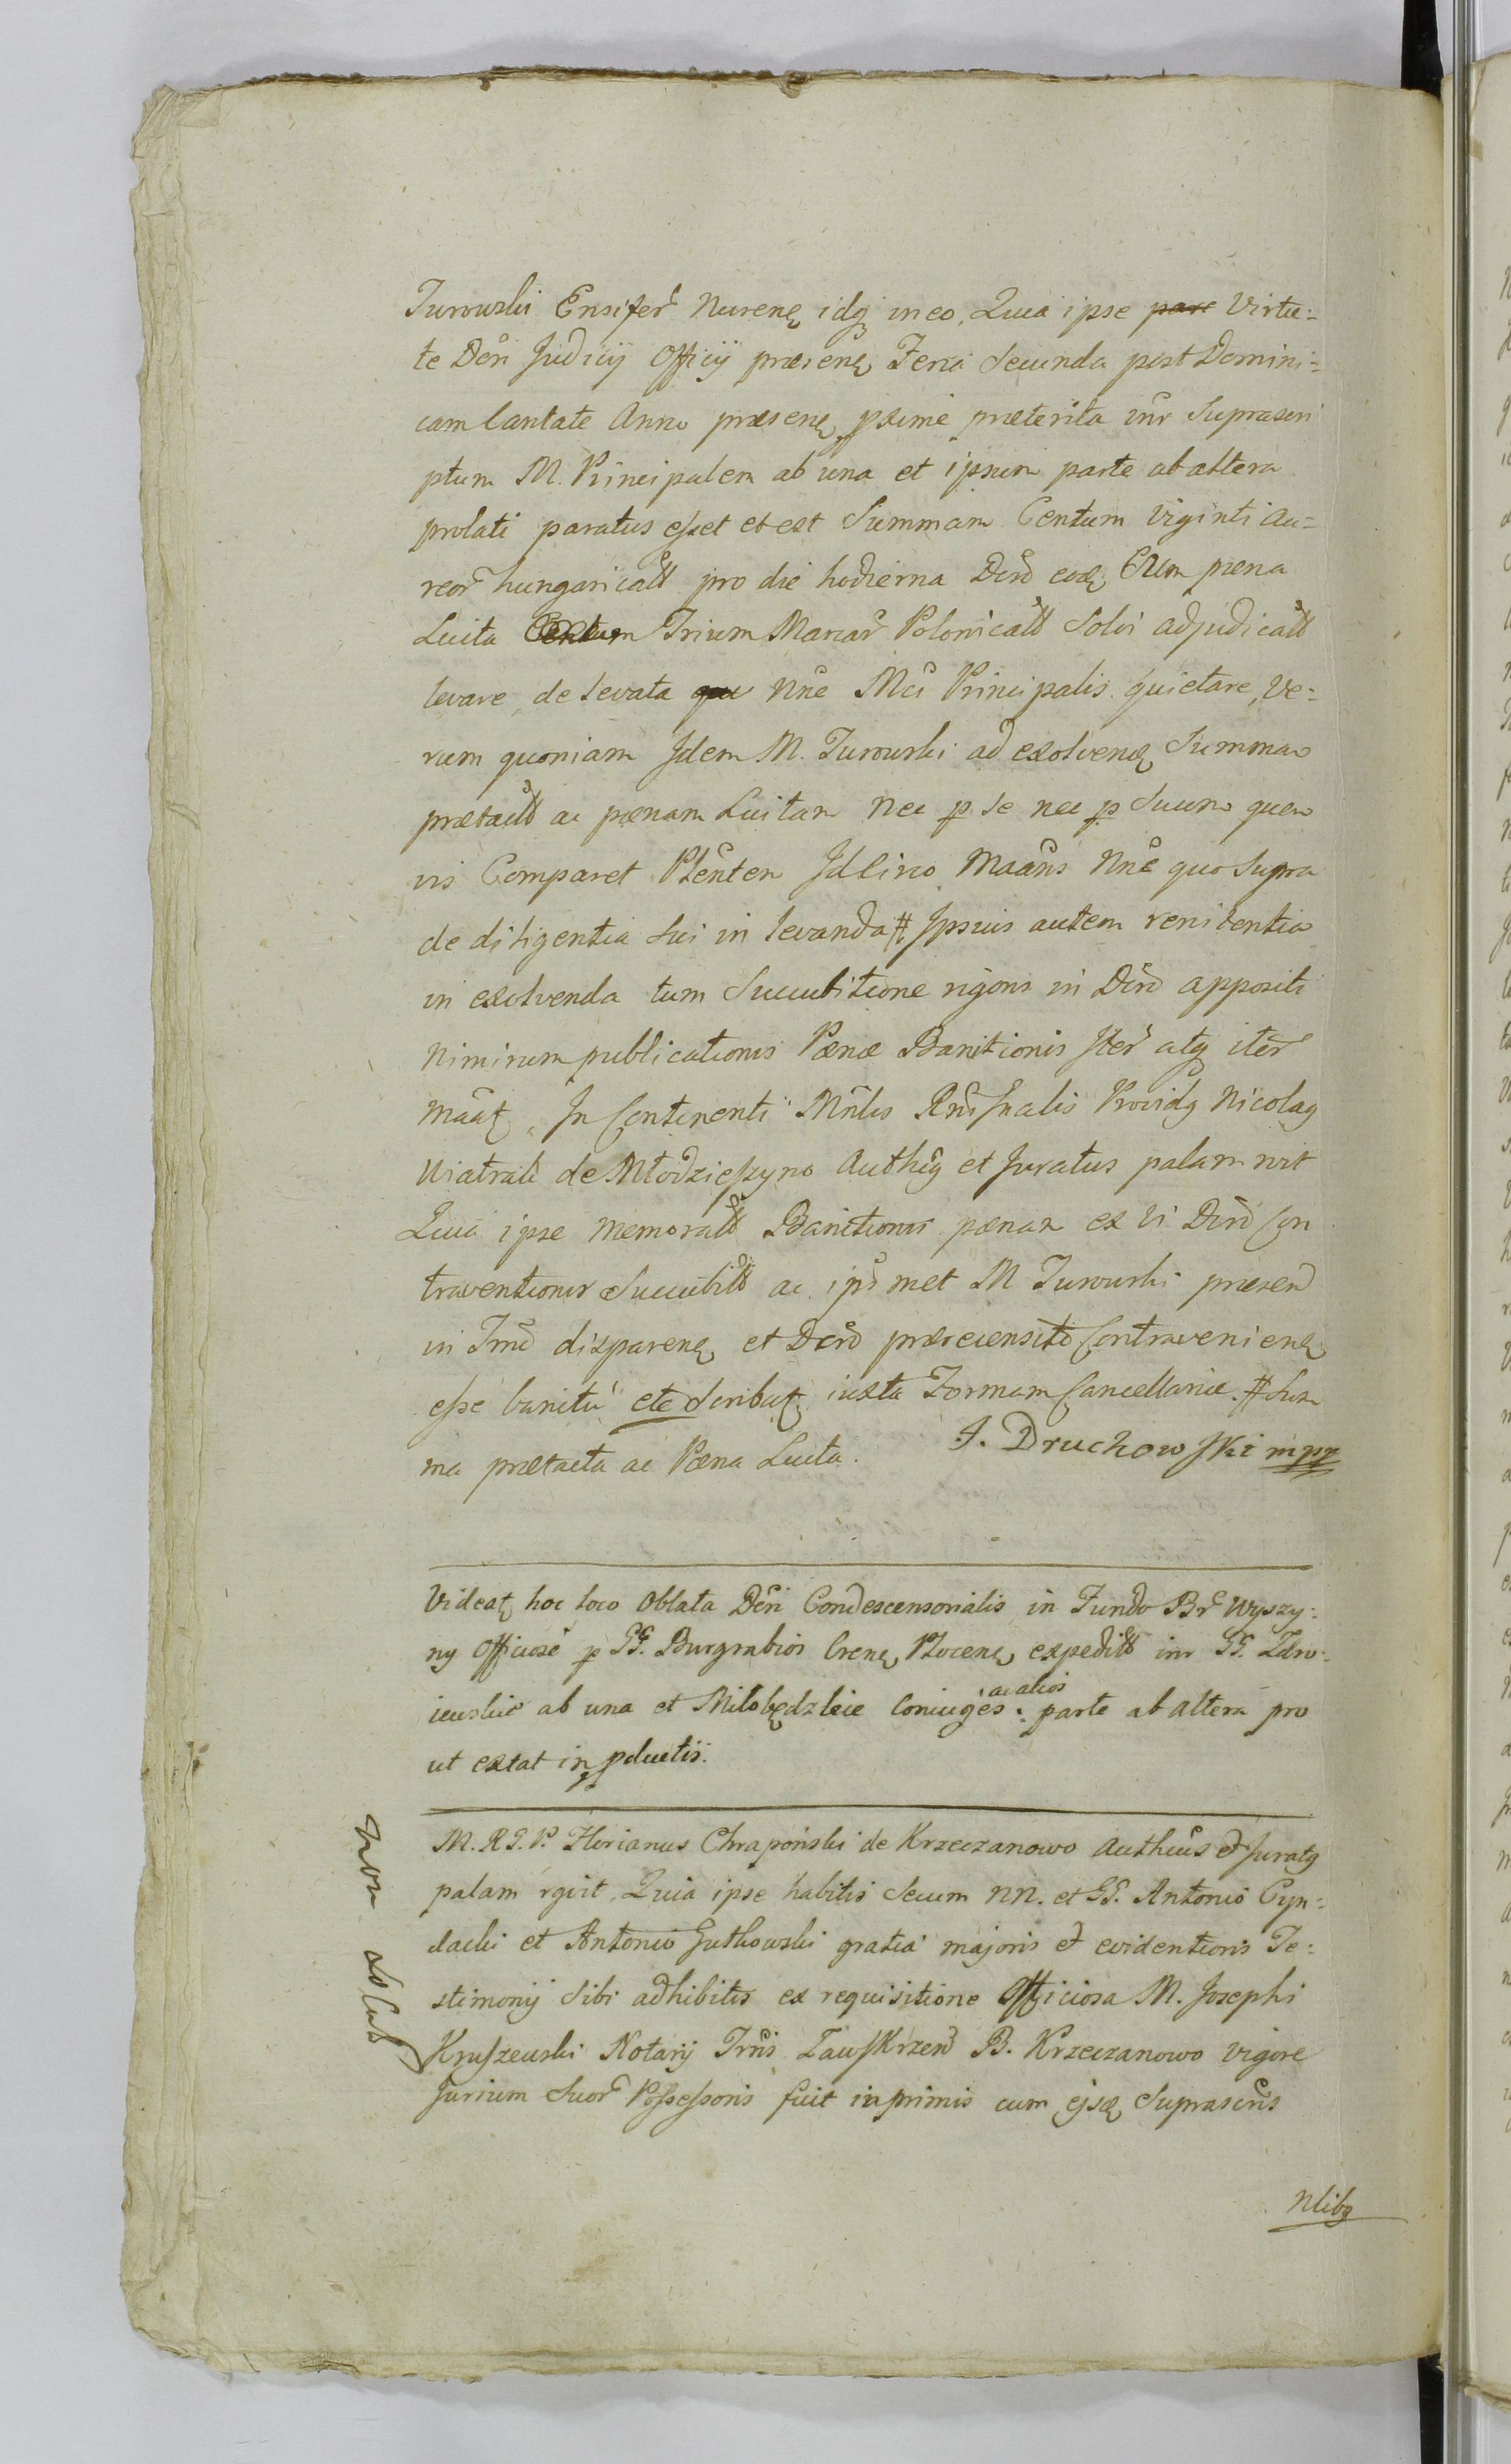 Turowski Ensifer Nurenę idq̃ in eo, Quia ipse pare Virtu:
te Dcri Judicij Officij præsenę Feria Secunda post Domini:
cam Cantate Anno præsenę pxime præterita inr Suprascri
ptum M. Principalem ab una et ipsum parte ab altera
prolati paratus esset et est Summam Centum Viginti Au:
reor hungaricall pro die hodierna Dcro eod, Cum pæna
Luita Trium Marcar Polonicall Solvi adjudicall
levare, de levata Nne Mci Principalis quietare, Ve:
rum quoniam Idem M. Turowski ad exolvenę Summam
prætactt ac pænam Luitam nec p se nec p Suum quem
vis Comparet Plenten Idcirco Maãns Nne quo Supra
de diligentia Sui in levanda # Ipsius autem renitentia
in exolvenda tum Succubitione rigoris in Dcro appositi
nimirum publicationis Pænæ Banitionis Iter atq iter
maãt, In Continenti Mnlis Rni Gnalis Providq Nicolaq
Wiatrak de Młodzieszyno Authẽq et Juratus palam rvit
Quia ipse memorall Banitionis pænam ex vi Dcro Con
traventionis Succubitt ac ipsmet M Turowski præsend
in Trmo disparenę et Dcro præcensito Contravenienę
esse banitũ etc Scribat, iuxta Formam Cancellariæ. # Sum
ma prætacta ac Pæna Luita. J. Druchowski mpp
Videat, hoc loco Oblata Dcri Condescensorialis in Fundo Br Wyszy:
ny Officiose p GG. Burgrabios Crenę Plocenę expeditt inr GG. Zdro:
iewskie ab una et Miłobędzkie Coniuges ac alios parte ab altera pro
ut extat in pductis.
non solut
M. R G. P. Florianus Chrapoński de Krzeczanowo Autheus et Juratq
palam rgvit, Quia ipse habitis Secum NN. et GG. Antonio Cyn:
dacki et Antonio Gutkowski gratia majoris et evidentioris Te:
stimonij Sibi adhibitis ex requisitione Officiosa M. Josephi
Kruszewski Notarij Trris Zawskrzen B. Krzeczanowo vigore
Jurium Suor Possessoris fuit inprimis cum ejsdę Suprascris
Nlibq